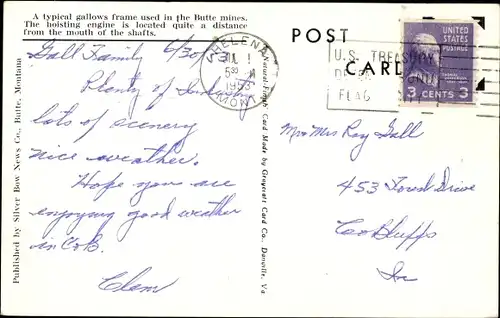 A typical gallows frame used in the Butte mines.
The hoisting engine is located quite a distance
from the mouth of the shafts.
Gall Family 6/30/
Plenty of
lots of scenery
nice weather.
Hope you are
enjoying good weather
in C.B.
Clem
Published by Silver Bow News Co., Butte, Montana
Natural-Finish Card Made by Graycraft Card Co., Danville, Va.
POST
CARD
HELENA
JUL 1
530 PM
1953
MONT.
U.S. TREASURY
FLAG
UNITED
STATES
POSTAGE
3 CENTS 3
Mr & Mrs Ray Gall
453 Forest Drive
Co Bluffs
Ia